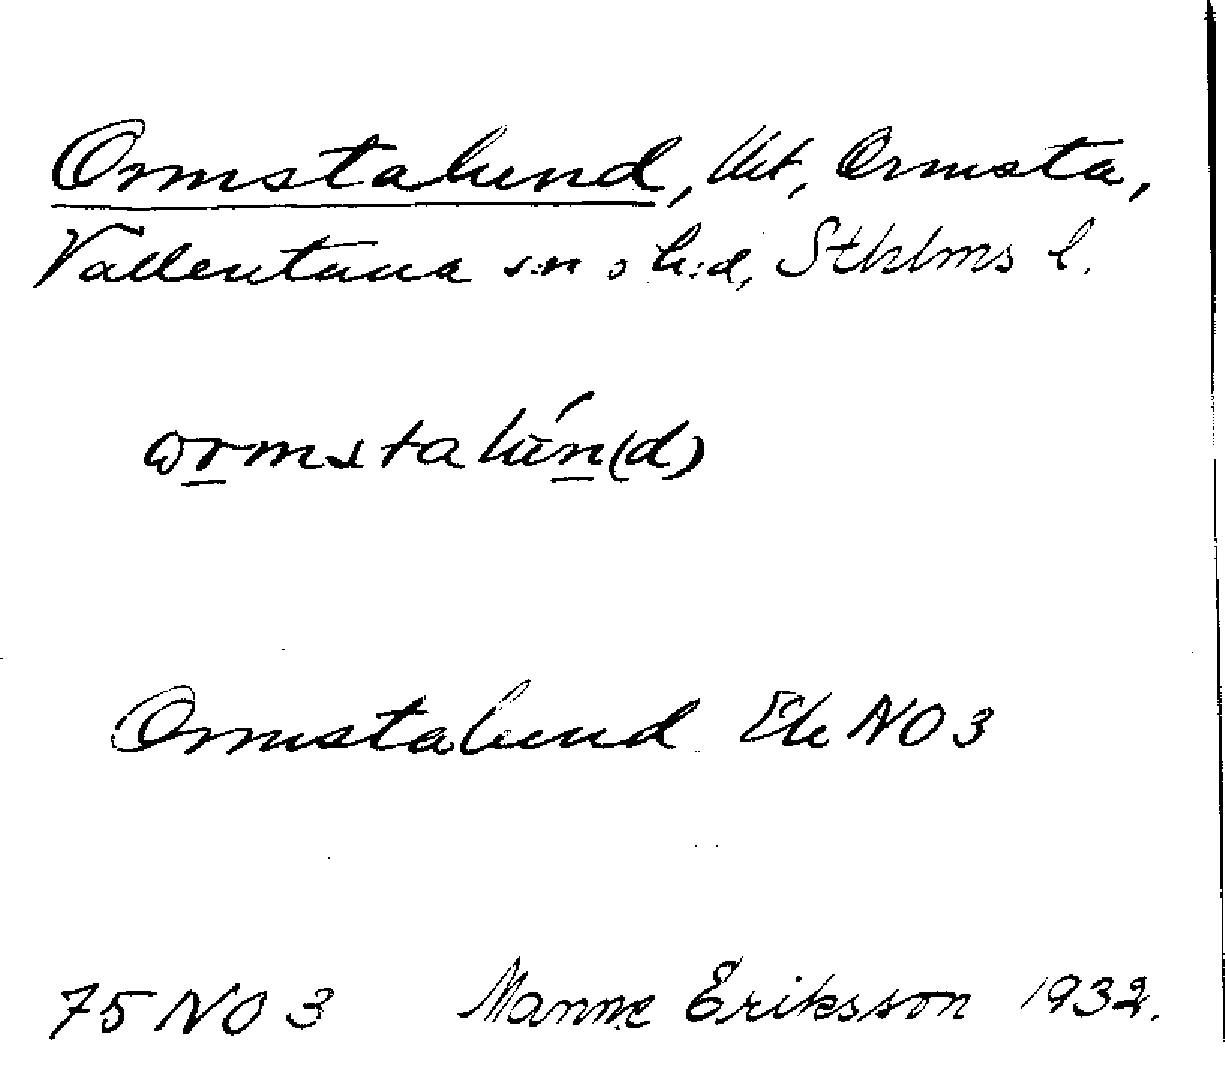 Ormstalund, Utt, Ormsta,
Vallentuna s:n o h:d, Sthlms l.
ormstalún(d)
Ormstalund Ek NO 3
75 NO 3 Manne Eriksson 1932.